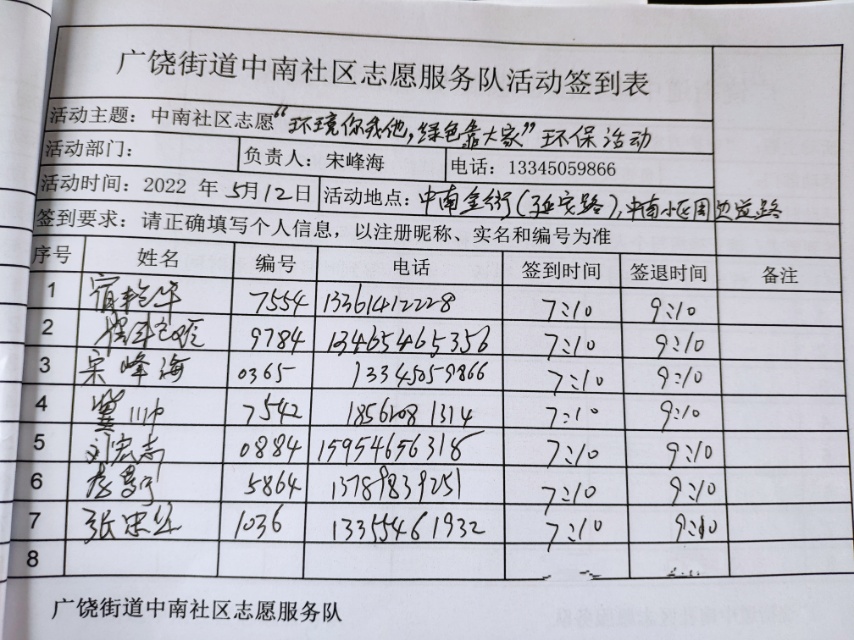 广饶街道中南社区志愿服务队活动签到表
活动主题：中南社区志愿“环境你我他，绿色靠大家”环保活动
活动部门： 负责人：宋峰海 电话：13345059866
活动时间：2022 年 5月12日 活动地点：中南金街（延安路），中南小区周边道路
签到要求：请正确填写个人信息，以注册昵称、实名和编号为准
序号 姓名 编号 电话 签到时间 签退时间 备注
1 7554 13361412228 7:10 9:10
2 9784 13465465356 7:10 9:10
3 宋峰海 0365 13345059866 7:10 9:10
4 7542 7:10 9:10
5 刘宏志 0884 15954656318 7:10 9:10
6 5864 13789839251 7:10 9:10
7 张忠 1036 13355461932 7:10 9:10
8
广饶街道中南社区志愿服务队